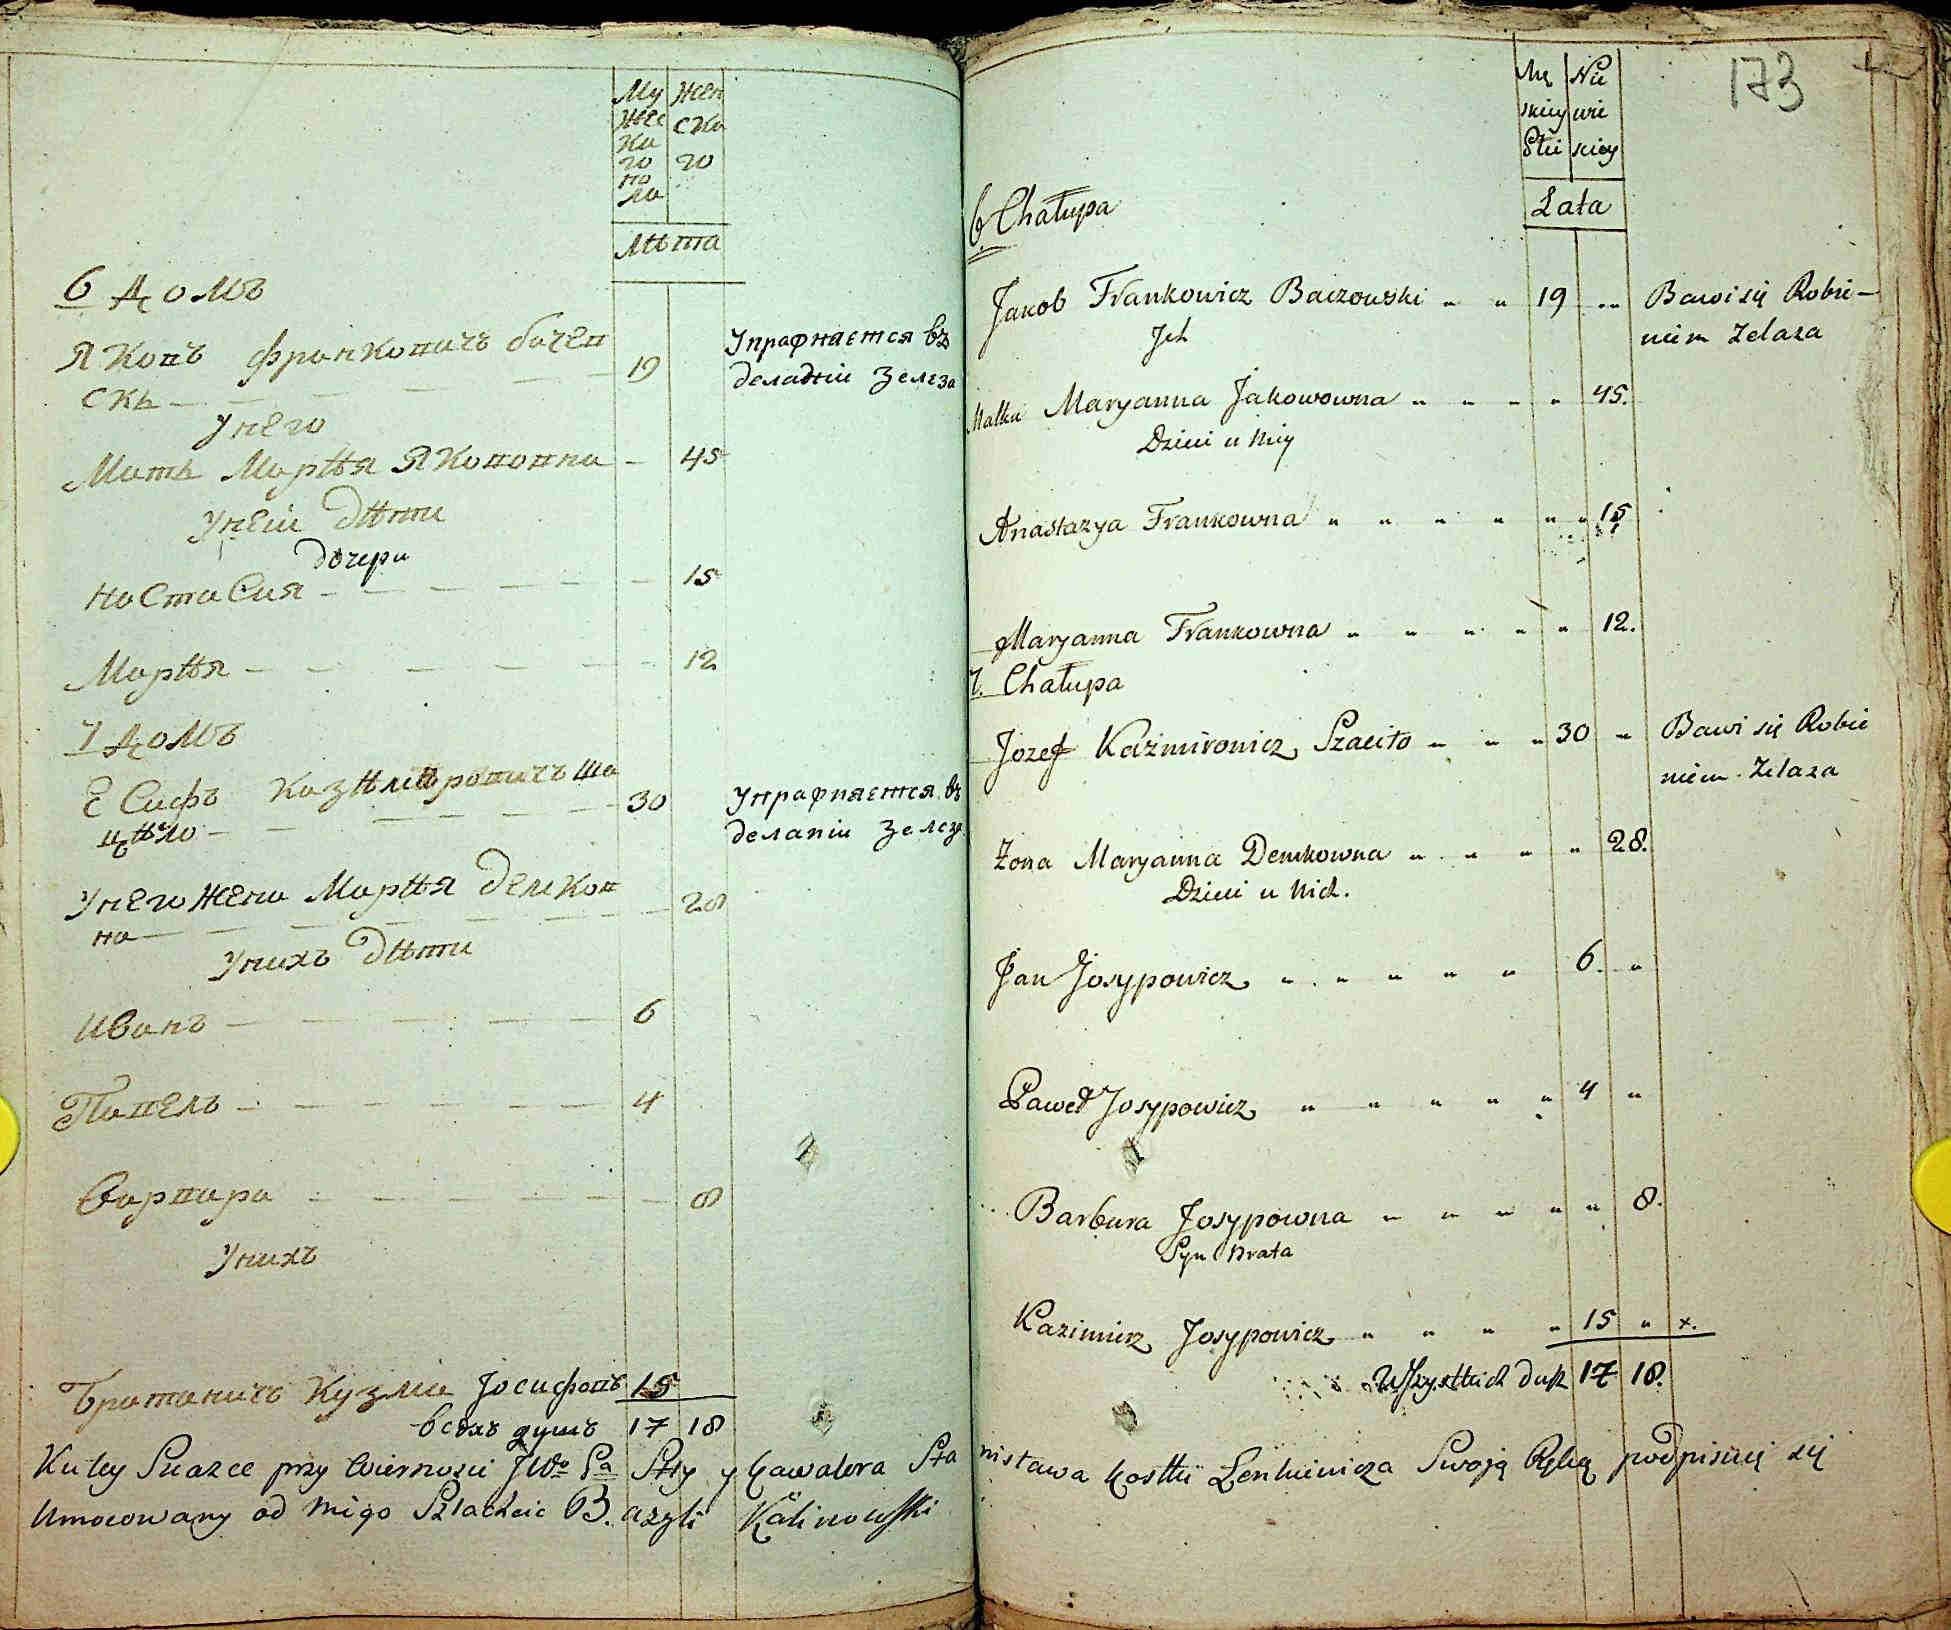 Му Жен
жес ска
ка го
го
по
ла
Лѣта
6 Домъ
Якопъ Франкопичъ бачеп
скь 19 Упражняется въ
делании Зелеза
У него
Мать Марья Якопопна 45
У неiи дѣти
дочери
Настасия 15
Марья 12
7 Домъ
Есифъ Казѣмѣропичъ ша
цѣло 30 Упражняется въ
делании Зелеза
У него жена Марья Демкоп
на 28
У нихъ дѣти
Иванъ 6
Папелъ 4
Варпара 8
У нихъ
Братаничъ Кузма Iосифопъ 15
всѣхъ душъ 17 18
173
Mę Nie
skiey wie
Płci sciey
Lata
6 Chałupa
Jakob Frankowicz Baczowski „ „ 19 „ Bawi się Robie-
niem Zelaza
Ich
Matka Maryanna Jakowowna „ „ „ „ 45.
Dzieci u Niey
Anastazya Frankowna „ „ „ „ „ „ 15
Maryanna Frankowna „ „ „ „ „ 12.
7. Chałupa
Jozef Kazimirowicz Szacito „ „ „ 30 „ Bawi się Robie
niem Zelaza
Zona Maryanna Demkowna „ „ „ „ 28.
Dzieci u Nich.
Jan Josypowicz „ „ „ „ „ 6. „
Paweł Josypowicz „ „ „ „ „ 4 „
Barbura Josypowna „ „ „ „ „ 8.
Syn Brata
Kazimierz Josypowicz „ „ „ „ 15 „ x.
Wszystkich dusz 17 18.
Ku tey Skazce przy Wiernosci JWo Pa Stty y Kawalera Sta nisława Kostki Lenkiewicza Swoją Ręką podpisuię się
Umocowany od niego Szlachcic Bazyli Kalinowski